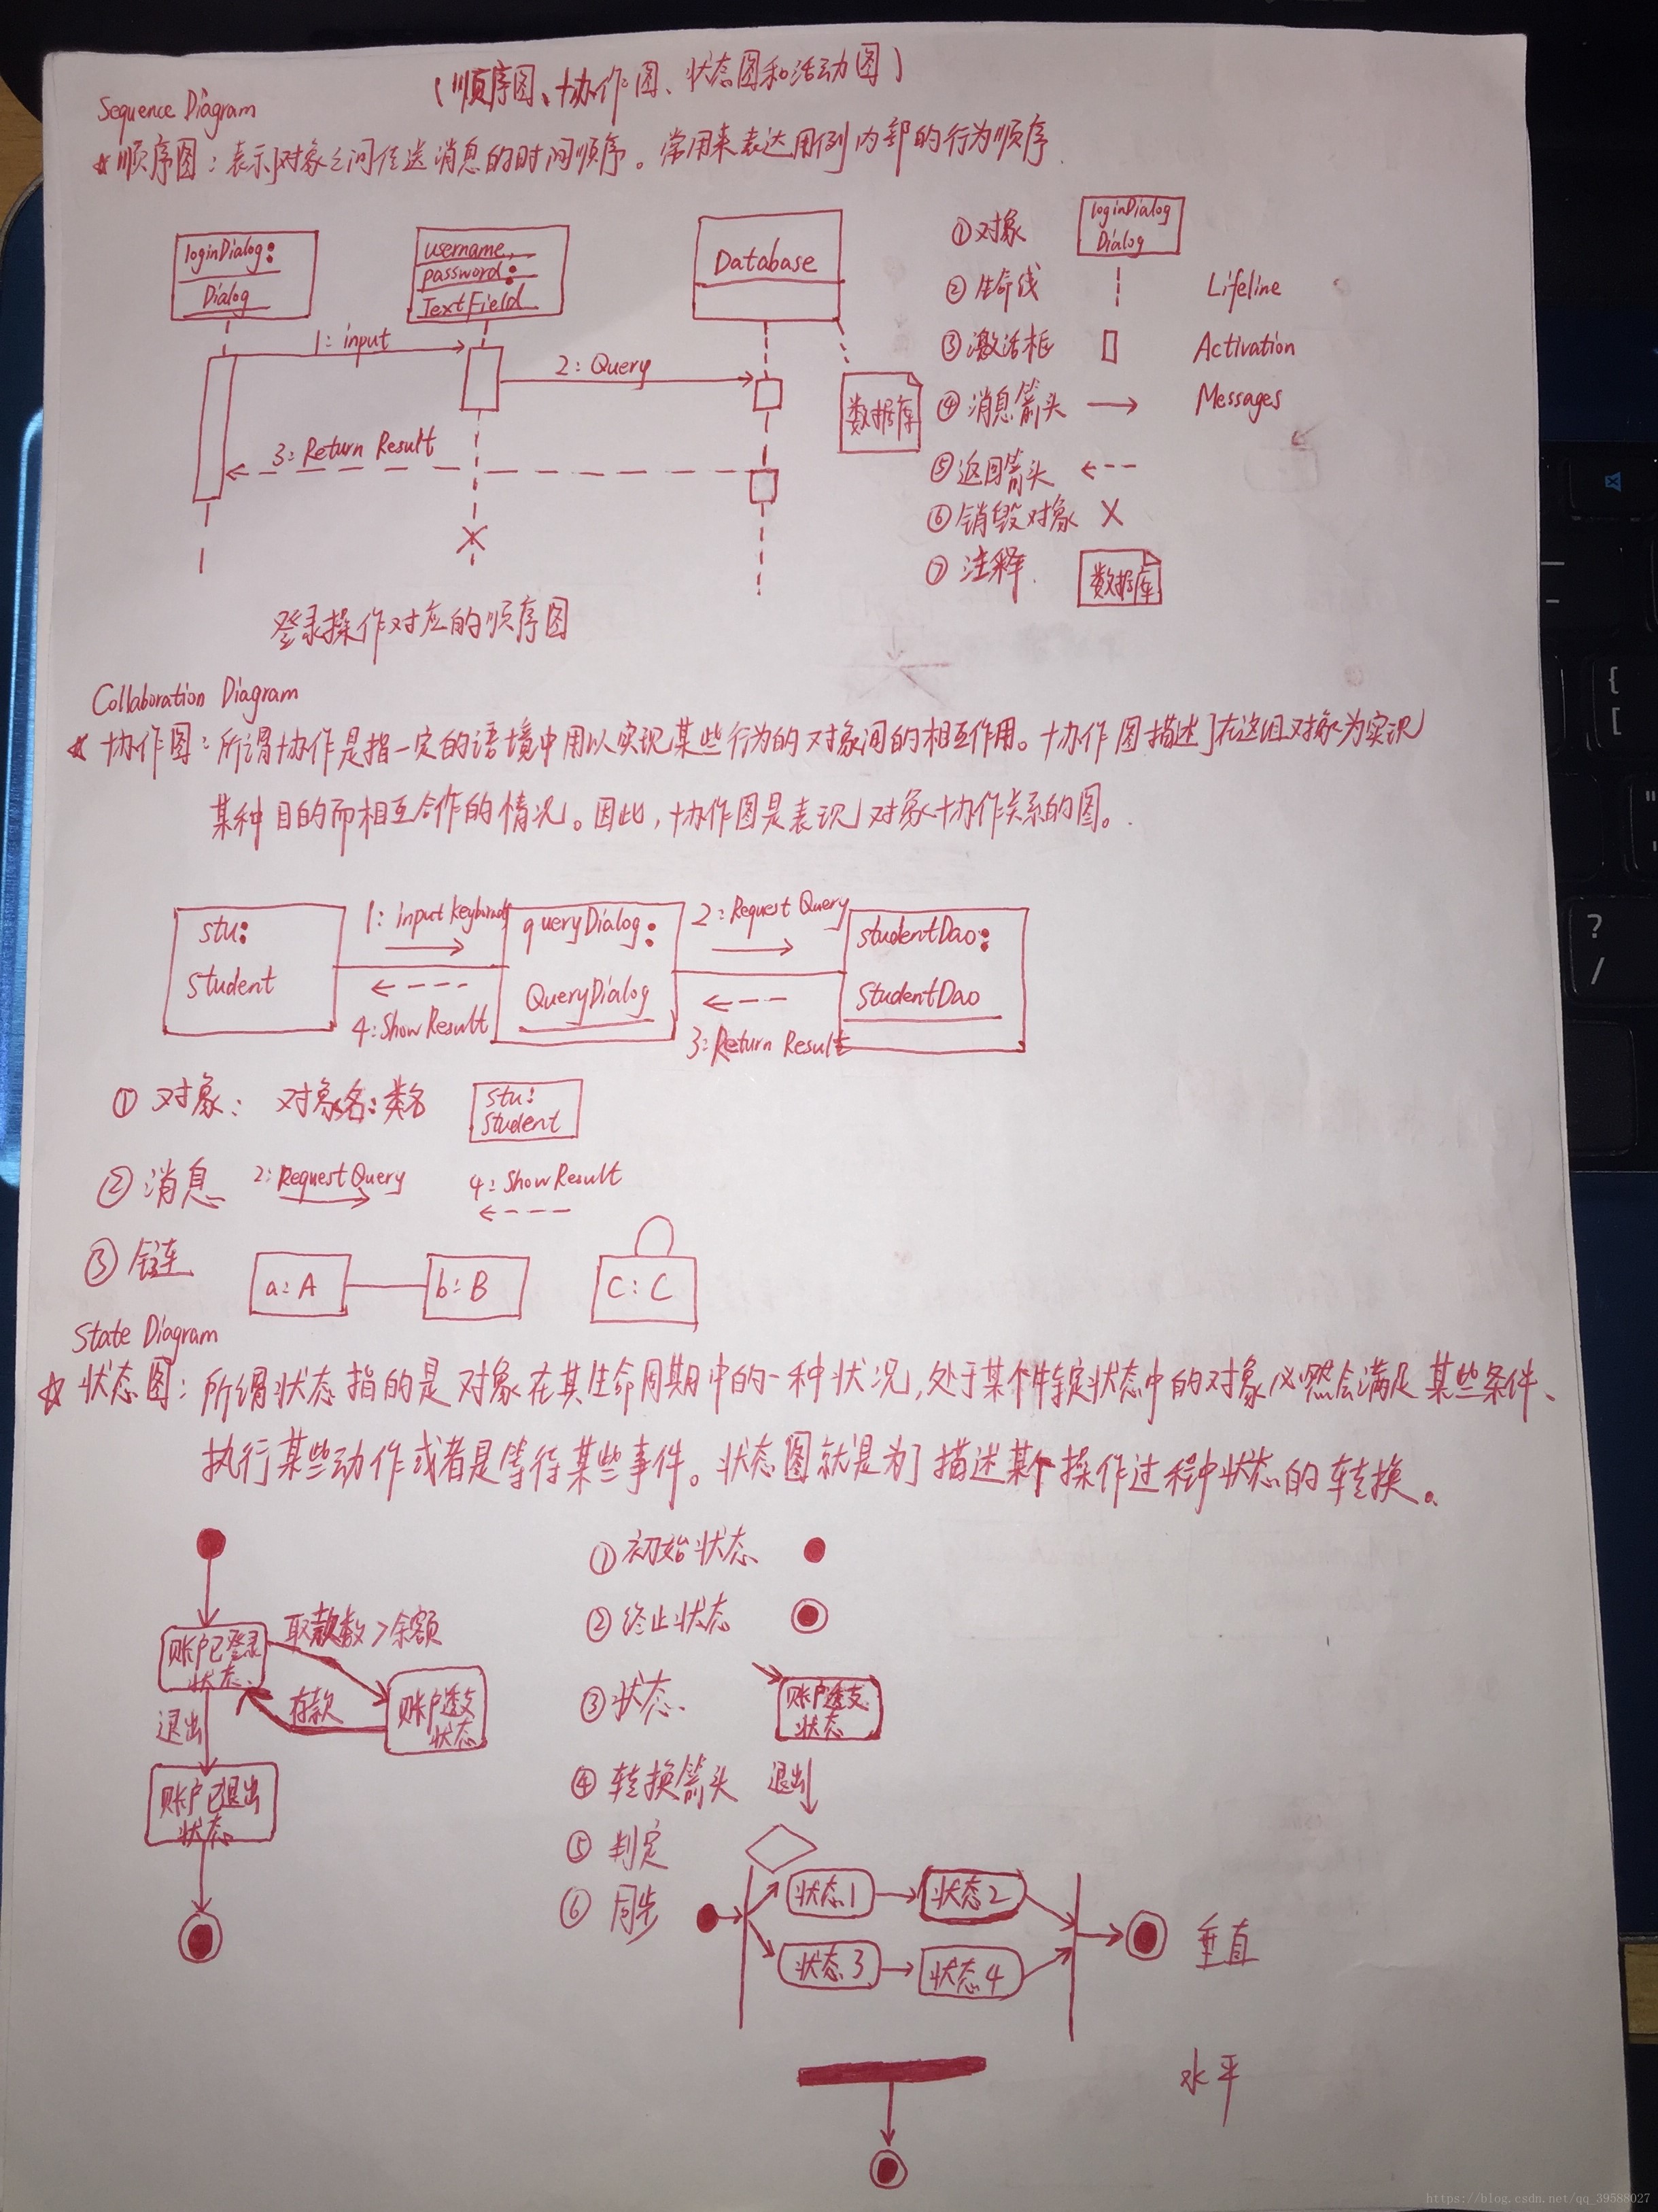 (顺序图、协作图、状态图和活动图)
Sequence Diagram
☆顺序图:表示对象之间传送消息的时间顺序。常用来表达用例内部的行为顺序.
loginDialog:
Dialog
username,
password:
TextField
Database
1: input
2: Query
3: Return Result
数据库
登录操作对应的顺序图
①对象
loginDialog
Dialog
②生命线 Lifeline
③激活框 Activation
④消息箭头 Messages
⑤返回箭头
⑥销毁对象
⑦注释.
数据库
Collaboration Diagram
☆协作图:所谓协作是指一定的语境中用以实现某些行为的对象间的相互作用。协作图描述了在这组对象为实现
某种目的而相互合作的情况。因此,协作图是表现对象协作关系的图。
stu:
Student
1: input
queryDialog:
QueryDialog
2: Request Query
studentDao:
StudentDao
4: Show Result
3: Return Result
①对象: 对象名:类名
stu:
Student
②消息 2: Request Query 4: Show Result
③链
a: A
b: B
C: C
State Diagram
☆状态图:所谓状态指的是对象在其生命周期中的一种状况,处于某个特定状态中的对象必然会满足某些条件、
执行某些动作或者是等待某些事件。状态图就是为了描述某个操作过程中状态的转换。
账户已登录
状态
取款数>余额
存款
账户透支
状态
退出
账户已退出
状态
①初始状态
②终止状态
③状态
账户透支
状态
④转换箭头 退出
⑤判定
⑥同步
状态1
状态2
状态3
状态4
垂直
水平
{
[
?
/
https://blog.csdn.net/qq_39588027